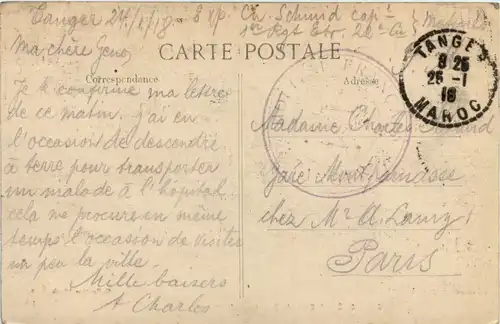 Tanger 24/1/18 8
Ch. Schmid
CARTE POSTALE
Correspondance
Adresse
Ma chère
Je te confirme ma lettre
de ce matin. J'ai eu
l'occasion de descendre
à terre pour transporter
un malade à l'hôpital
cela me procure en même
temps l'occasion de visiter
un peu la ville.
Mille baisers
Charles
TANGER
9 25
25 -1
18
MAROC
Madame Charles Schmid
gare Montparnasse
chez Mr A.
Paris